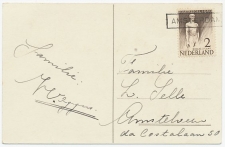 AMSTERDAM
2
NEDERLAND
Familie:
Familie
L. Selle
Amstelveen
da Costalaan 50